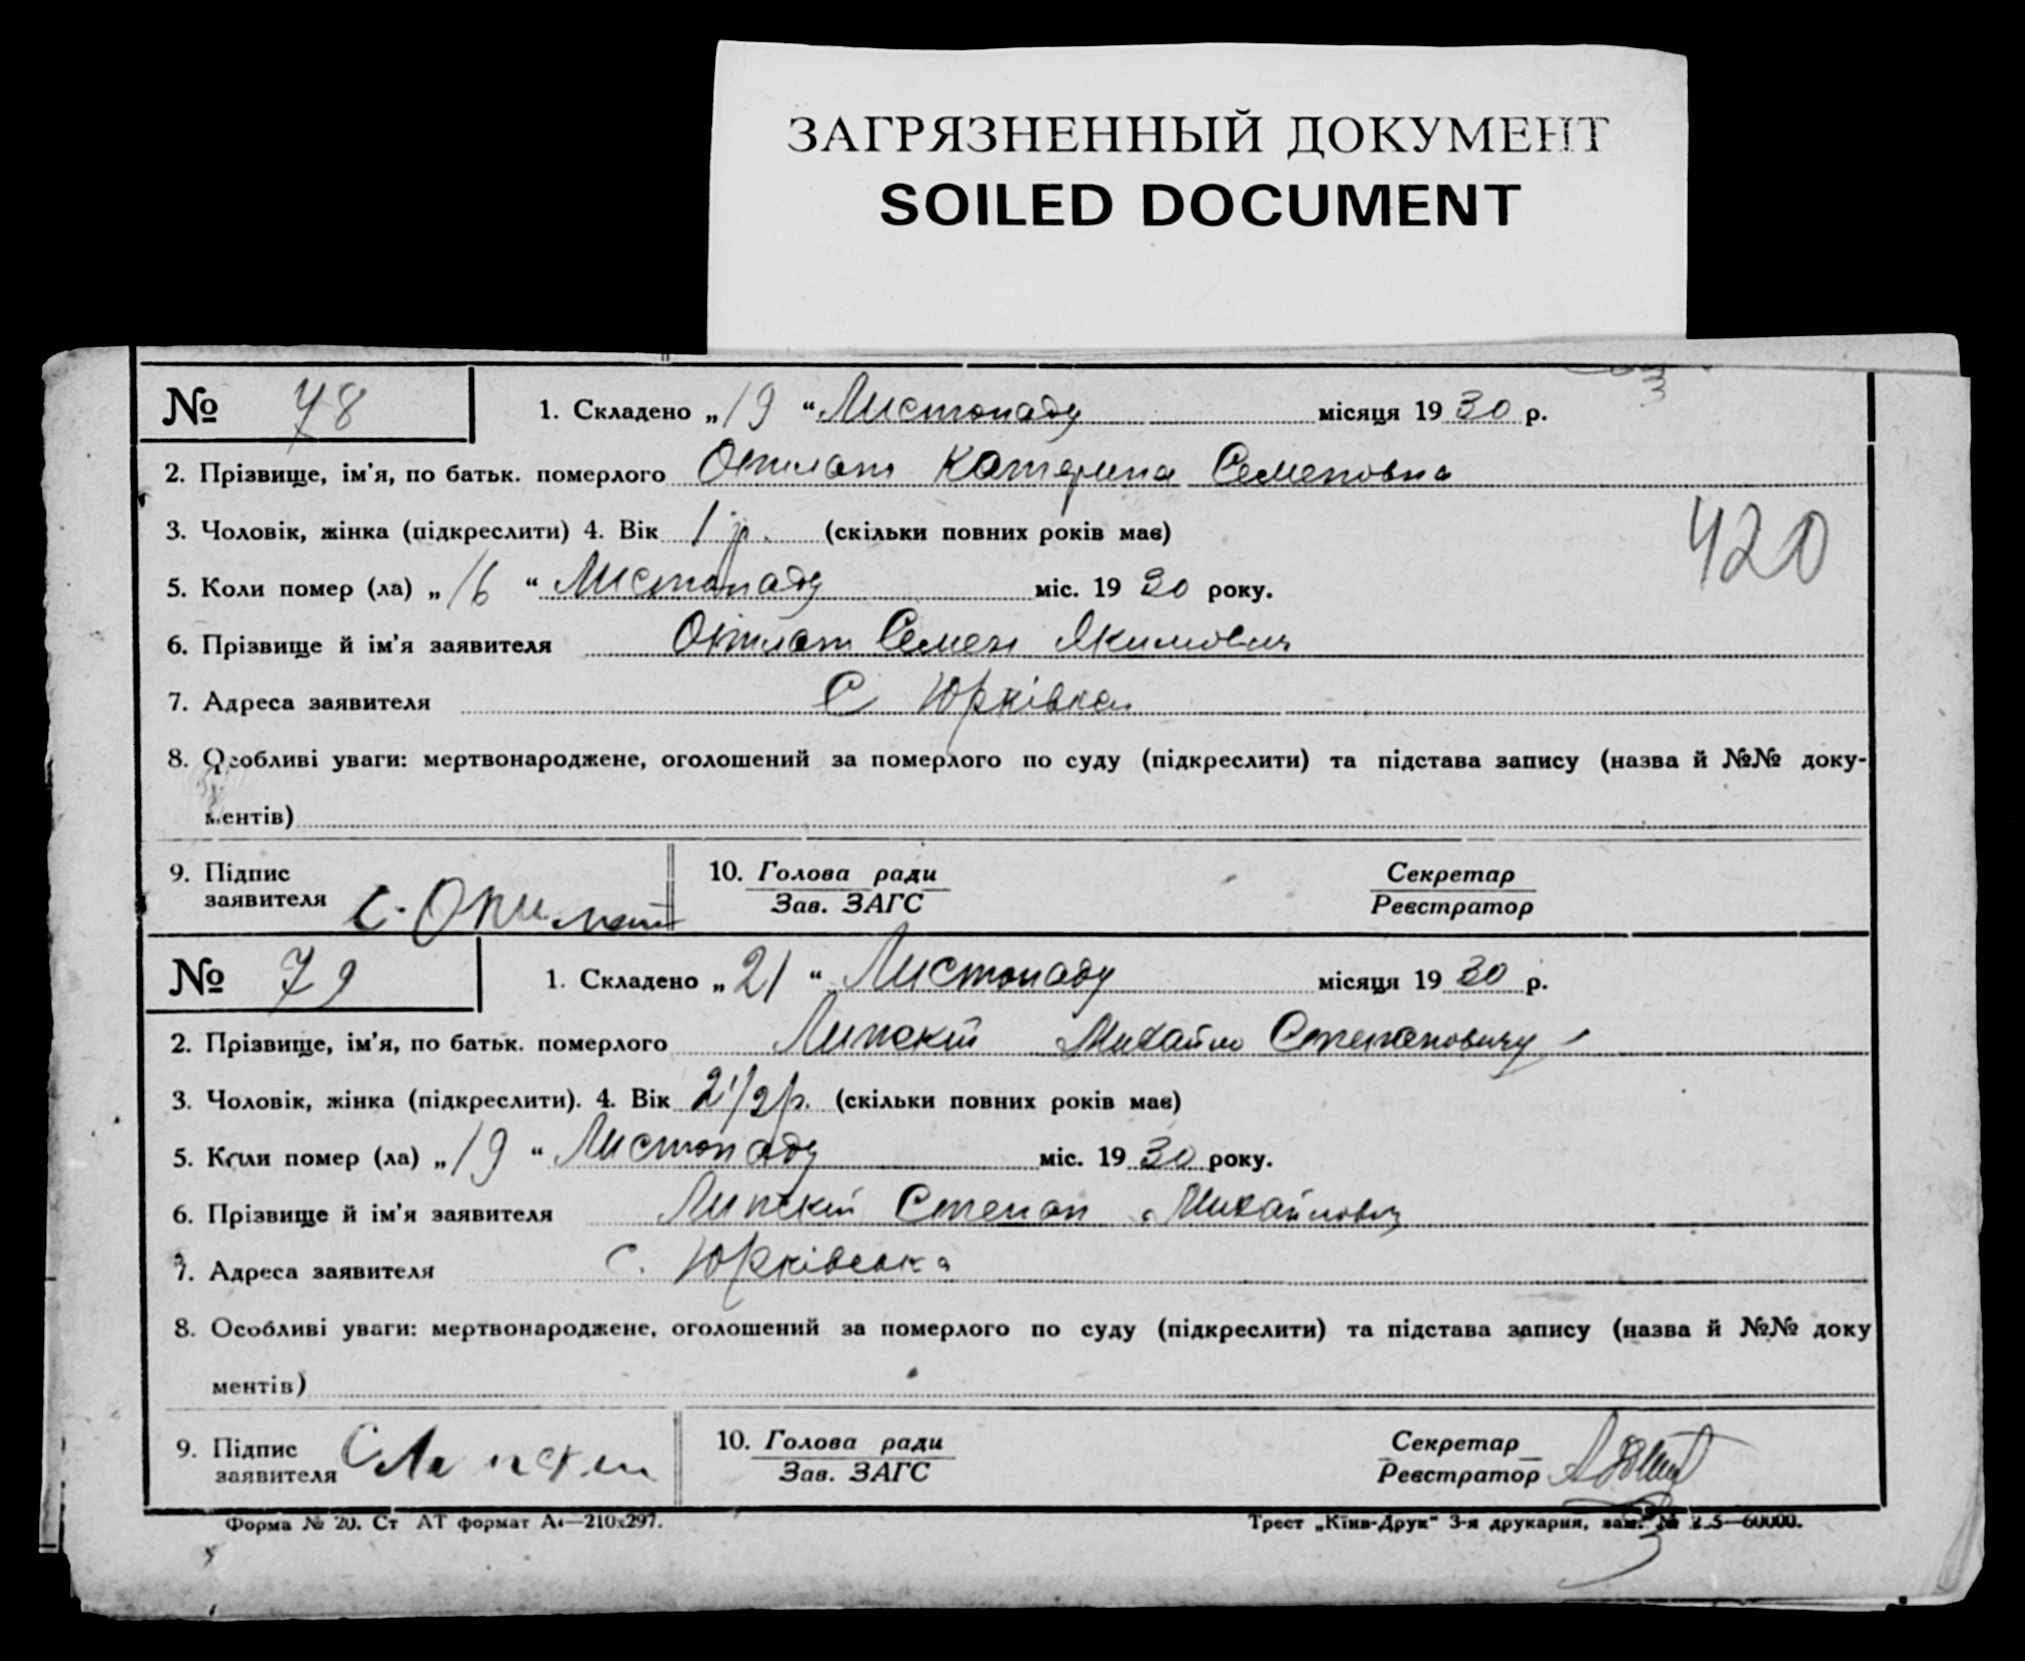 ЗАГРЯЗНЕННЫЙ ДОКУМЕНТ
SOILED DOCUMENT
№ 78 1. Складено „19“ Листопаду місяця 1930 р.
2. Прізвище, ім'я, по батьк. померлого Катерина Семеновна
3. Чоловік, жінка (підкреслити) 4. Вік 1 р. (скільки повних років має)
420
5. Коли помер (ла) „16“ Листопаду міс. 1930 року.
6. Прізвище й ім'я заявителя Семен Якимович
7. Адреса заявителя С Юрківка
8. Особливі уваги: мертвонароджене, оголошений за померлого по суду (підкреслити) та підстава запису (назва й №№ доку-
ментів)
9. Підпис заявителя С. 10. Голова ради Секретар
Зав. ЗАГС Реєстратор
№ 79 1. Складено „21“ Листопаду місяця 1930 р.
2. Прізвище, ім'я, по батьк. померлого Липскій Михайло Степановичу
3. Чоловік, жінка (підкреслити). 4. Вік 2 1/2 р. (скільки повних років має)
5. Коли помер (ла) „19“ Листопаду міс. 1930 року.
6. Прізвище й ім'я заявителя Липскій Степан Михайлович
7. Адреса заявителя с. Юрківська
8. Особливі уваги: мертвонароджене, оголошений за померлого по суду (підкреслити) та підстава запису (назва й №№ доку
ментів)
9. Підпис заявителя 10. Голова ради Секретар
Зав. ЗАГС Реєстратор
Форма № 20. Ст АТ формат А4—210х297.
Трест „Київ-Друк“ 3-я друкарня, зам. №